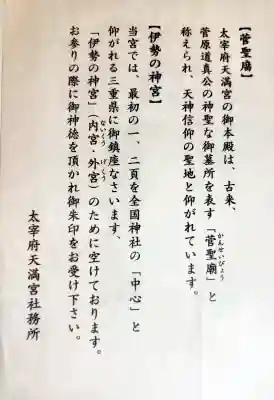 【菅聖廟】
太宰府天満宮の御本殿は、古来、
菅原道真公の神聖な御墓所を表す「菅聖廟」と
かんせいびょう
称えられ、天神信仰の聖地と仰がれています。
【伊勢の神宮】
当宮では、最初の一、二頁を全国神社の「中心」と
仰がれる三重県に御鎮座なさいます、
「伊勢の神宮」（内宮・外宮）のために空けております。
ないくう　げくう
お参りの際に御神徳を頂かれ御朱印をお受け下さい。
太宰府天満宮社務所